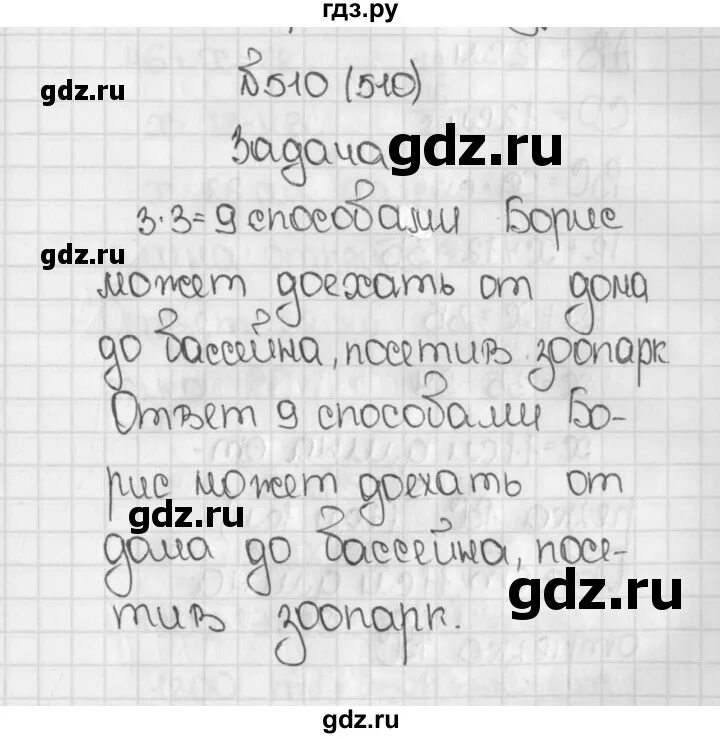 гдз.ру
gdz.ru
№510 (510)
Задача
gdz.ru
3·3=9 способами Борис
gdz.ru
может доехать от дома
до бассейна, посетив зоопарк
Ответ 9 способами Бо-
рис может доехать от
gdz.ru
дома до бассейна, посе-
gdz.ru
тив зоопарк.
gdz.ru